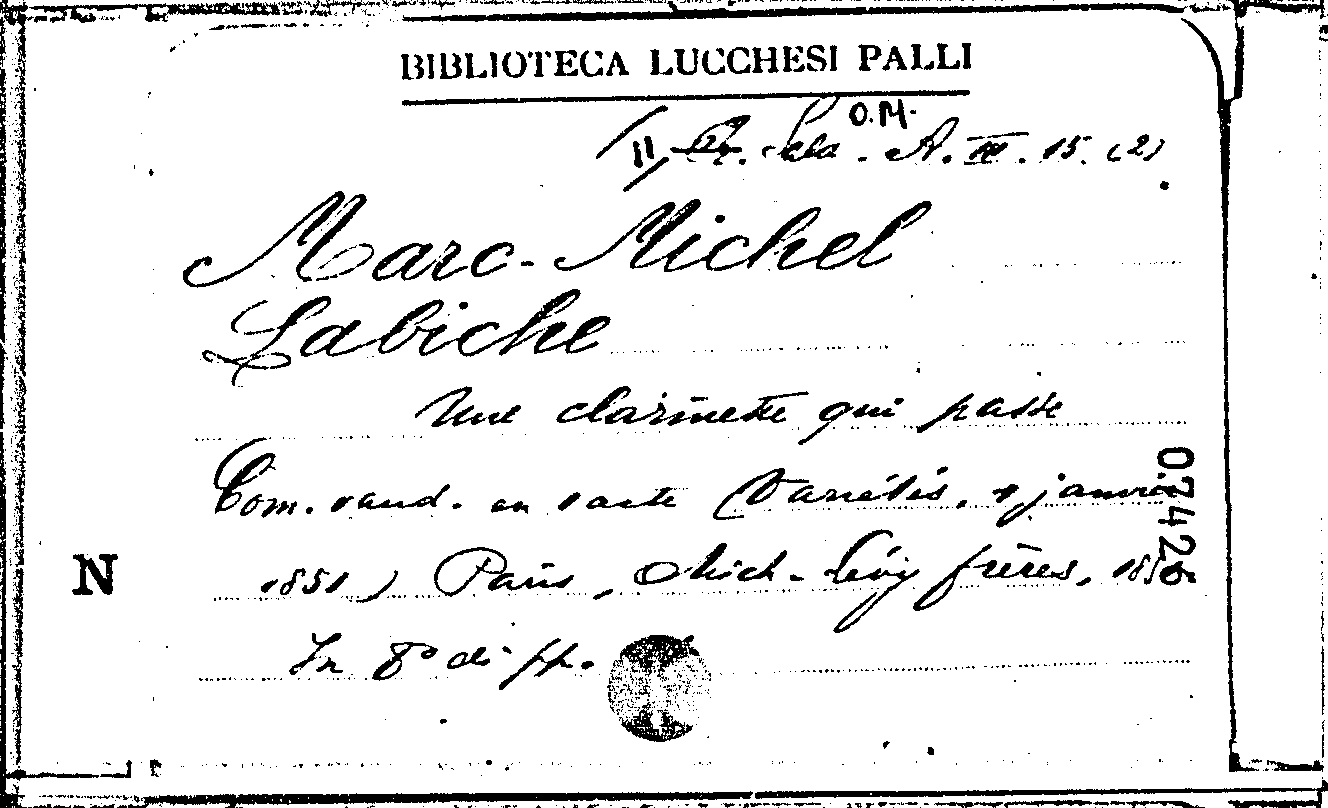 BIBLIOTECA LUCCHESI PALLI
O.M.
A. III. 15. (2)
Marc-Michel
Labiche
Une clarinette qui passe
Com. vaud. en 1 acte (Variétés, 4 janvier
1851) Paris, Mich-Lévy frères, 185
In 8° di pp.
N
07426